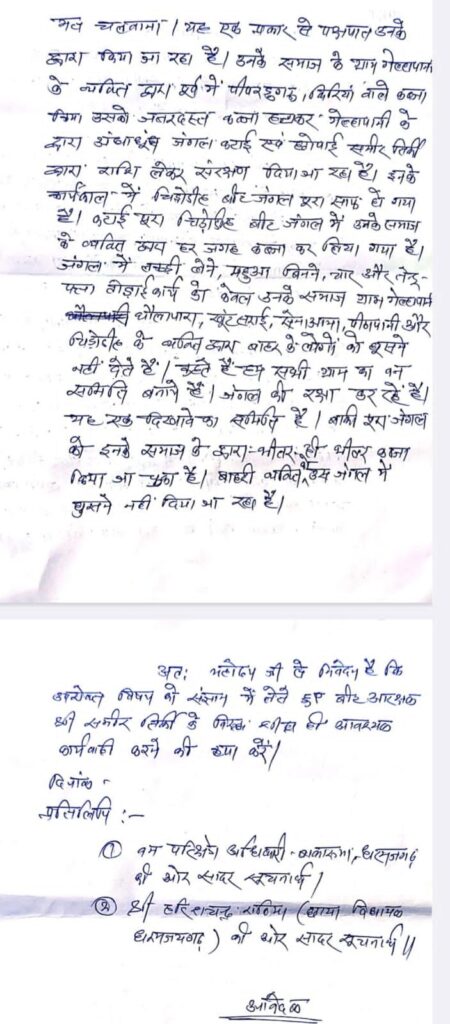 मत चलवाना। यह एक प्रकार से पक्षपात उनके
द्वारा किया जा रहा है। उनके समाज के ग्राम गेल्हापानी
के व्यक्ति द्वारा पूर्व में पीपरडुगरू, किरियां वाले कब्जा
किया उसको जबरदस्त कब्जा हटाकर गेल्हापानी के
द्वारा अंधाधुंध जंगल कटाई एवं झोपाई समीर तिर्की
द्वारा राशि लेकर संरक्षण दिया जा रहा है। इनके
कार्यकाल में चिड़ोडीह बीट जंगल पूरा साफ हो गया
है। कटाई पूरा चिड़ोडीह बीट जंगल में उनके समाज
के व्यक्ति द्वारा हर जगह कब्जा कर लिया गया है।
जंगल में लकड़ी बीने, महुआ बिनने, चार और तेन्दू-
पत्ता तोड़ाई कार्य को केवल उनके समाज ग्राम गेल्हापानी
धौलापारा, पीठापानी और
चिड़ोडीह के व्यक्ति द्वारा बाहर के लोगों को घुसने
नहीं देते हैं। कहते हैं हम सभी ग्राम का वन
समिति बनाये हैं। जंगल की रक्षा कर रहे हैं।
यह एक दिखावे का समिति है। बाकी पूरा जंगल
को इनके समाज के द्वारा भीतर ही भीतर कब्जा
किया जा चुका है। बाहरी व्यक्ति को इस जंगल में
घुसने नहीं दिया जा रहा है।
अतः महोदय जी से निवेदन है कि
उपरोक्त विषय को संज्ञान में लेते हुए बीट आरक्षक
श्री समीर तिर्की के विरुद्ध शीघ्र ही आवश्यक
कार्यवाही करने की कृपा करें।
दिनांक -
प्रतिलिपि :-
① वन परिक्षेत्र अधिकारी - बाकारूमा, धरमजयगढ़
की ओर सादर सूचनार्थ।
② श्री हरिशचन्द्र राठिया (छाया विधायक
धरमजयगढ़) की ओर सादर सूचनार्थ॥
आवेदक